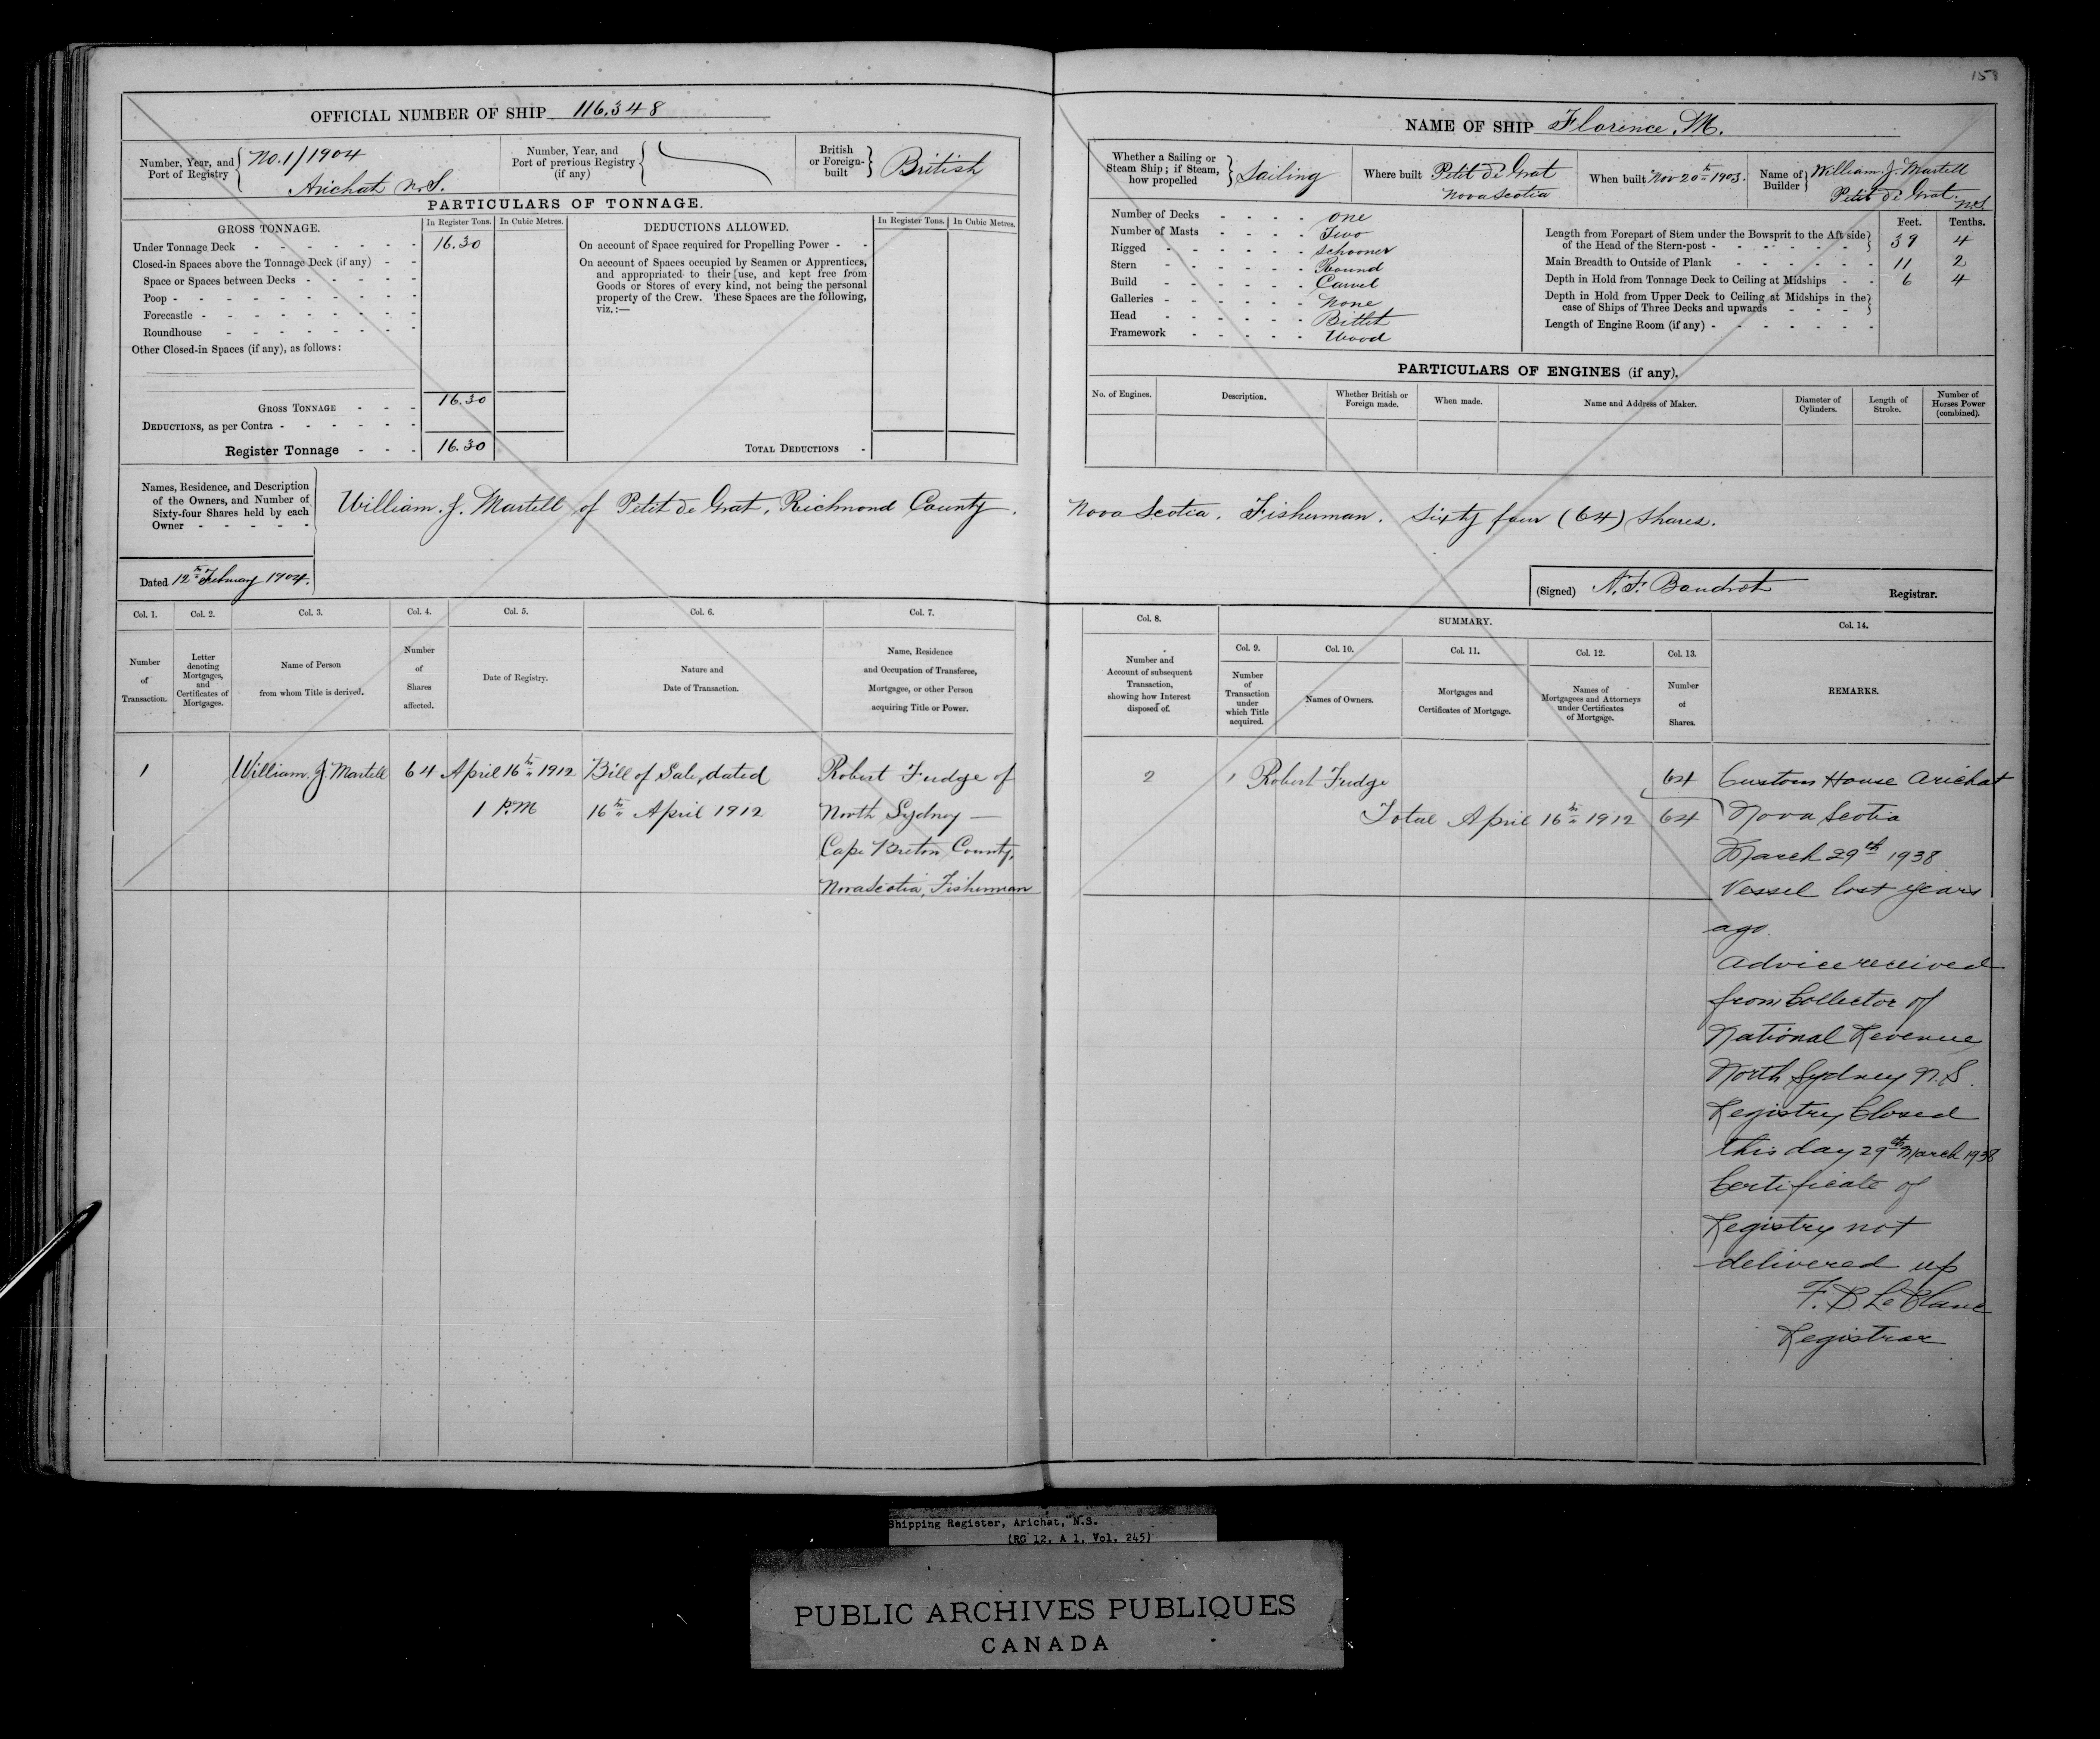 158
OFFICIAL NUMBER OF SHIP 116,348
Number, Year, and Port of Registry No. 1/1904
Arichat N.S.
Number, Year, and Port of previous Registry (if any)
British or Foreign-built British
PARTICULARS OF TONNAGE.
GROSS TONNAGE. In Register Tons. In Cubic Metres.
Under Tonnage Deck - - - - - - - 16.30
Closed-in Spaces above the Tonnage Deck (if any) - -
Space or Spaces between Decks - - - - -
Poop - - - - - - - - - -
Forecastle - - - - - - - -
Roundhouse - - - - - - -
Other Closed-in Spaces (if any), as follows:
GROSS TONNAGE - - - 16.30
DEDUCTIONS, as per Contra - - - - - -
Register Tonnage - - - 16.30
DEDUCTIONS ALLOWED. In Register Tons. In Cubic Metres.
On account of Space required for Propelling Power - -
On account of Spaces occupied by Seamen or Apprentices,
and appropriated to their use, and kept free from
Goods or Stores of every kind, not being the personal
property of the Crew. These Spaces are the following,
viz.:—
TOTAL DEDUCTIONS -
NAME OF SHIP Florence. M.
Whether a Sailing or Steam Ship; if Steam, how propelled Sailing
Where built Petit de Grat
Nova Scotia
When built Nov 20th 1903.
Name of Builder William. J. Martell
Petit de Grat. N.S.
Number of Decks - - - - one
Number of Masts - - - - Two
Rigged - - - - - - schooner
Stern - - - - - - Round
Build - - - - - - Carvel
Galleries - - - - - - None
Head - - - - - - Billet
Framework - - - - - Wood
Feet. Tenths.
Length from Forepart of Stem under the Bowsprit to the Aft side
of the Head of the Stern-post - - - - - - 39 4
Main Breadth to Outside of Plank - - - - - - 11 2
Depth in Hold from Tonnage Deck to Ceiling at Midships - - 6 4
Depth in Hold from Upper Deck to Ceiling at Midships in the
case of Ships of Three Decks and upwards - - - -
Length of Engine Room (if any) - - - - - - -
PARTICULARS OF ENGINES (if any).
No. of Engines. Description. Whether British or Foreign made. When made. Name and Address of Maker. Diameter of Cylinders. Length of Stroke. Number of Horses Power (combined).
Names, Residence, and Description
of the Owners, and Number of
Sixty-four Shares held by each
Owner - - - - -
William. J. Martell of Petit de Grat, Richmond County. Nova Scotia. Fisherman. Sixty four (64) Shares.
Dated 12th February 1904.
(Signed) A. F. Boudrot Registrar.
Col. 1. Col. 2. Col. 3. Col. 4. Col. 5. Col. 6. Col. 7.
Number of Transaction.
Letter denoting Mortgages, and Certificates of Mortgages.
Name of Person from whom Title is derived.
Number of Shares affected.
Date of Registry.
Nature and Date of Transaction.
Name, Residence and Occupation of Transferee, Mortgagee, or other Person acquiring Title or Power.
1 William. J. Martell 64 April 16th 1912 Bill of Sale, dated Robert Fudge of
1 P.M 16th April 1912 North Sydney —
Cape Breton County,
Nova Scotia, Fisherman
Col. 8. SUMMARY. Col. 14.
Col. 9. Col. 10. Col. 11. Col. 12. Col. 13.
Number and Account of subsequent Transaction, showing how Interest disposed of.
Number of Transaction under which Title acquired.
Names of Owners.
Mortgages and Certificates of Mortgage.
Names of Mortgagees and Attorneys under Certificates of Mortgage.
Number of Shares.
REMARKS.
2 1 Robert Fudge 64
Total April 16th 1912 64
Custom House Arichat
Nova Scotia
March 29th 1938
Vessel lost years
ago.
Advice received
from Collector of
National Revenue
North Sydney N.S.
Registry Closed
this day 29th March 1938
Certificate of
Registry not
delivered up
F. B. LeBlanc
Registrar
Shipping Register, Arichat, N.S.
(RG 12, A 1, Vol. 245)
PUBLIC ARCHIVES PUBLIQUES
CANADA